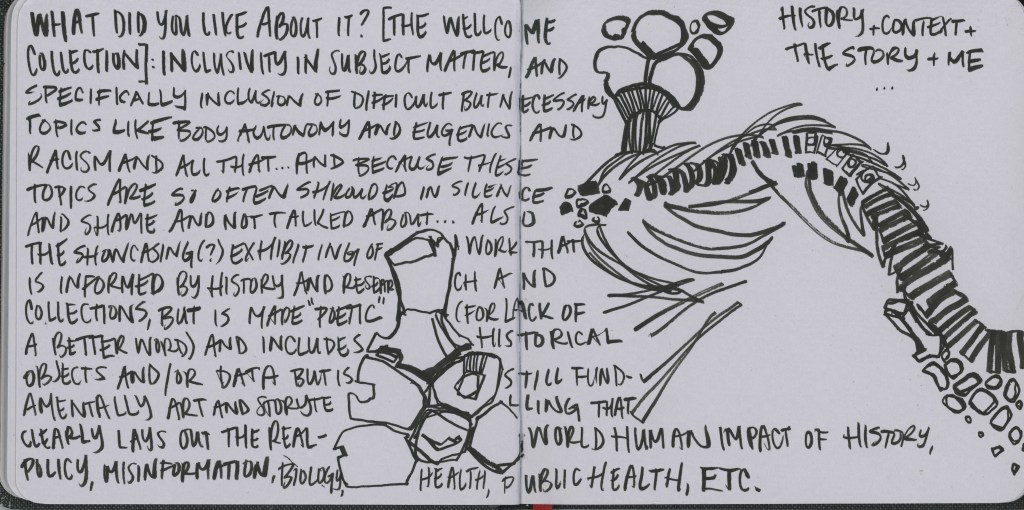 WHAT DID YOU LIKE ABOUT IT? [THE WELLCOME
COLLECTION]: INCLUSIVITY IN SUBJECT MATTER, AND
SPECIFICALLY INCLUSION OF DIFFICULT BUT NECESSARY
TOPICS LIKE BODY AUTONOMY AND EUGENICS AND
RACISM AND ALL THAT... AND BECAUSE THESE
TOPICS ARE SO OFTEN SHROUDED IN SILENCE
AND SHAME AND NOT TALKED ABOUT... ALSO
THE SHOWCASING(?) EXHIBITING OF WORK THAT
IS INFORMED BY HISTORY AND RESEARCH AND
COLLECTIONS, BUT IS MADE "POETIC" (FOR LACK OF
A BETTER WORD) AND INCLUDES HISTORICAL
OBJECTS AND/OR DATA BUT IS STILL FUND-
AMENTALLY ART AND STORYTELLING THAT
CLEARLY LAYS OUT THE REAL-WORLD HUMAN IMPACT OF HISTORY,
POLICY, MISINFORMATION, BIOLOGY, HEALTH, PUBLIC HEALTH, ETC.
HISTORY + CONTEXT +
THE STORY + ME
...